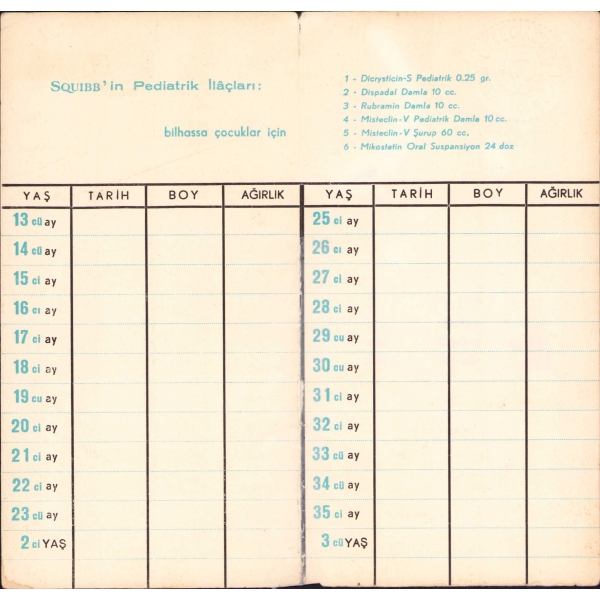 SQUIBB'in Pediatrik İlâçları:
bilhassa çocuklar için
1 - Dicrysticin-S Pediatrik 0.25 gr.
2 - Dispadal Damla 10 cc.
3 - Rubramin Damla 10 cc.
4 - Misteclin-V Pediatrik Damla 10 cc.
5 - Misteclin-V Şurup 60 cc.
6 - Mikostatin Oral Suspansiyon 24 doz
YAŞ TARİH BOY AĞIRLIK
13 cü ay
14 cü ay
15 ci ay
16 cı ay
17 ci ay
18 ci ay
19 cu ay
20 ci ay
21 ci ay
22 ci ay
23 cü ay
2 ci YAŞ
YAŞ TARİH BOY AĞIRLIK
25 ci ay
26 cı ay
27 ci ay
28 ci ay
29 cu ay
30 cu ay
31 ci ay
32 ci ay
33 cü ay
34 cü ay
35 ci ay
3 cü YAŞ